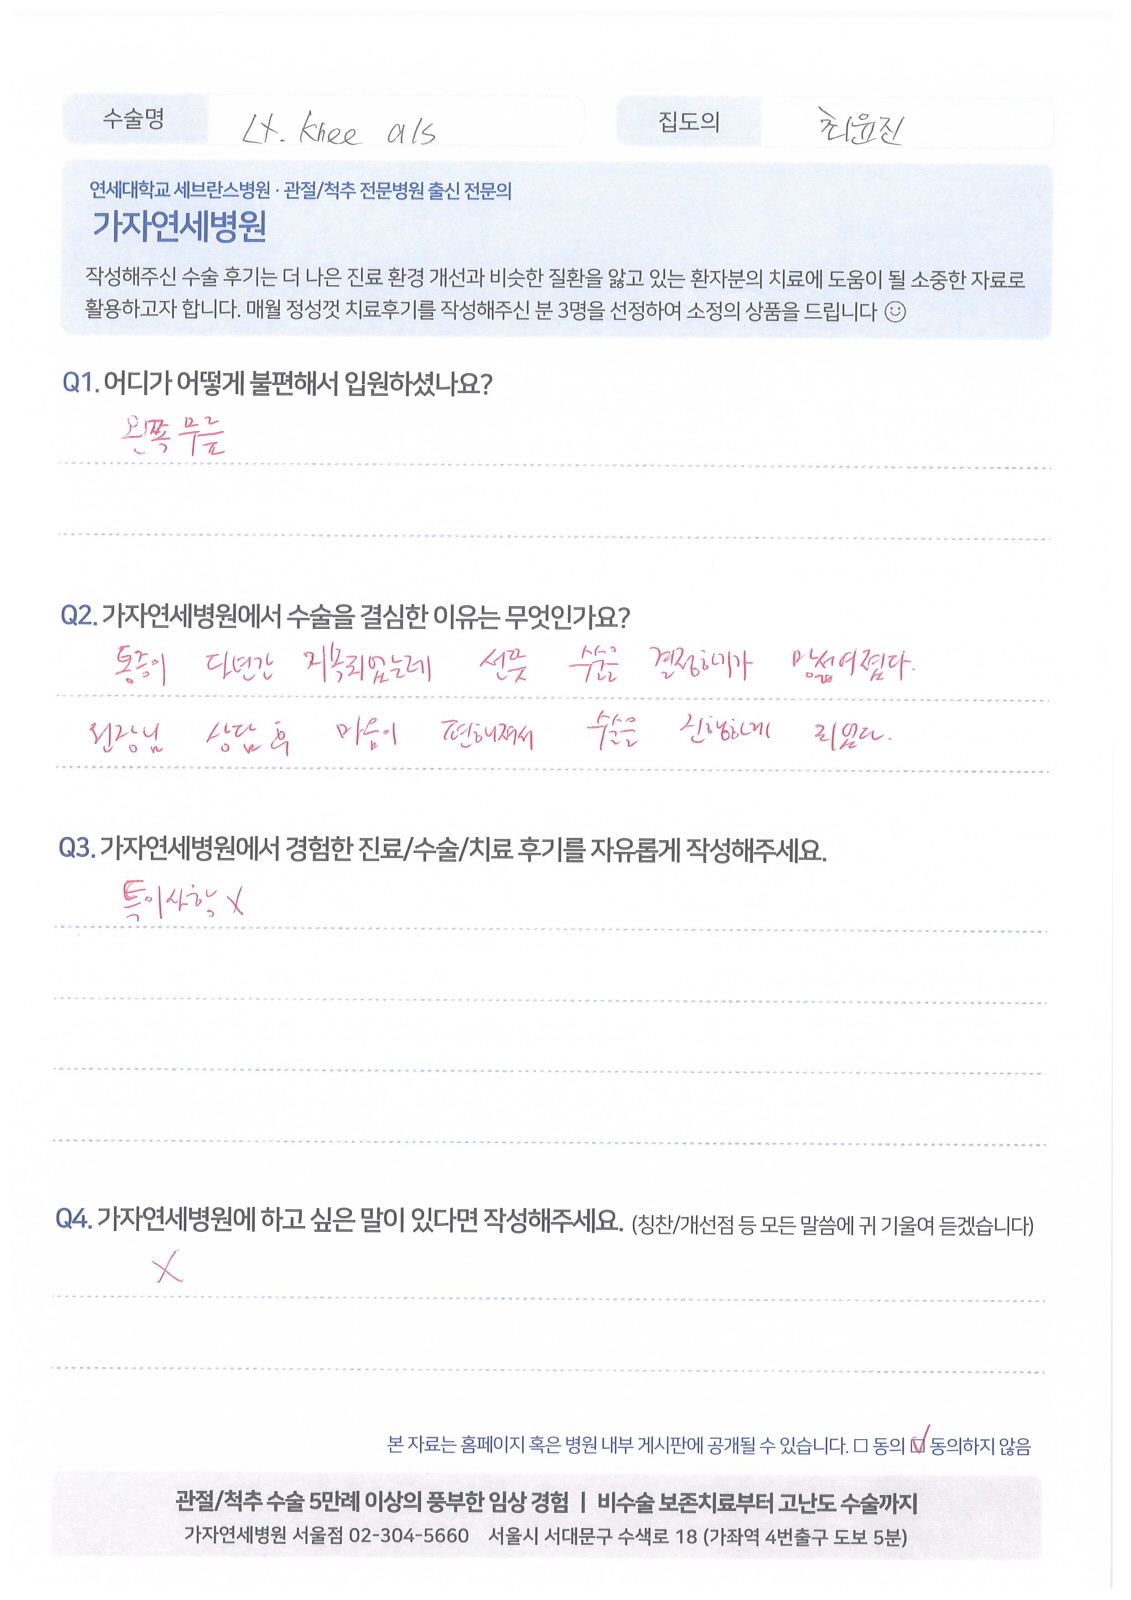 수술명 Lt. knee a/s 집도의 최윤진
연세대학교 세브란스병원 · 관절/척추 전문병원 출신 전문의
가자연세병원
작성해주신 수술 후기는 더 나은 진료 환경 개선과 비슷한 질환을 앓고 있는 환자분의 치료에 도움이 될 소중한 자료로
활용하고자 합니다. 매월 정성껏 치료후기를 작성해주신 분 3명을 선정하여 소정의 상품을 드립니다 ☺
Q1. 어디가 어떻게 불편해서 입원하셨나요?
왼쪽 무릎
Q2. 가자연세병원에서 수술을 결심한 이유는 무엇인가요?
통증이 다년간 지속되었는데 선뜻 수술을 결정하기가 망설여졌다.
원장님 상담 후 마음이 편해져서 수술을 진행하게 되었다.
Q3. 가자연세병원에서 경험한 진료/수술/치료 후기를 자유롭게 작성해주세요.
특이사항 X
Q4. 가자연세병원에 하고 싶은 말이 있다면 작성해주세요. (칭찬/개선점 등 모든 말씀에 귀 기울여 듣겠습니다)
X
본 자료는 홈페이지 혹은 병원 내부 게시판에 공개될 수 있습니다. □ 동의 ☑ 동의하지 않음
관절/척추 수술 5만례 이상의 풍부한 임상 경험 | 비수술 보존치료부터 고난도 수술까지
가자연세병원 서울점 02-304-5660 서울시 서대문구 수색로 18 (가좌역 4번출구 도보 5분)